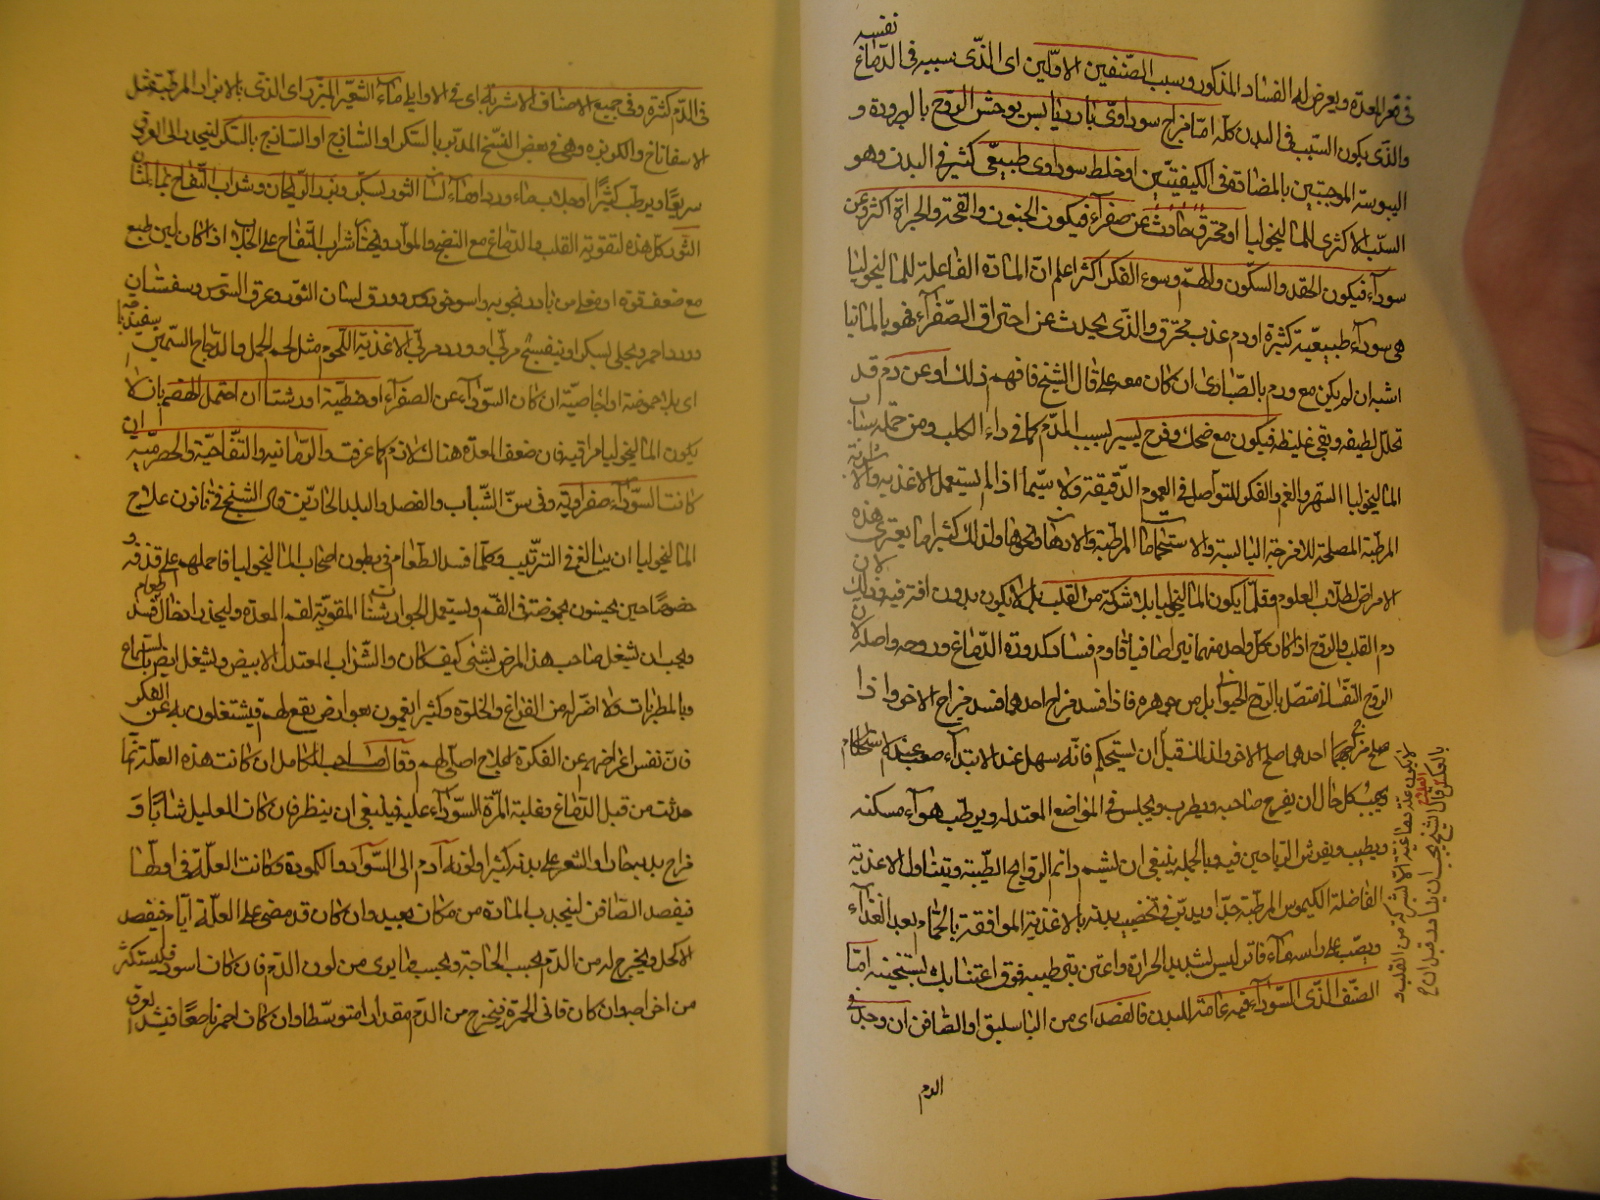 نفسه
فى قعر المعدة ويعرض له الفساد المذكور وسبب الصنفين الاولين اى الذى سببه فى الدماغ
والذى يكون السبب فى البدن كله امّا مزاج سوداوى بارد يابس يوحش الروح بالبرودة و
اليبوسة الموجبتين بالمضادة فى الكيفيتين او خلط سوداوى طبيعى كثير فى البدن وهو
السبب الاكثرى للمالنخوليا او محترق حادث عن صفراء فيكون الجنون والقحة والجراة اكثر وعن
سوداء فيكون الحقد والسكون والهم وسوء الفكر اكثر اعلم ان المادة الفاعلة للمالنخوليا
هى سوداء طبيعية كثيرة او دم عذب محترق والذى يحدث عن احتراق الصفراء فهو بالمانيا
اشبه ان لم يكن مع ورم بالصبارى ان كان معه على قال الشيخ فافهم ذلك او عن دم قد
تحلل لطيفه وبقى غليظه فيكون مع ضحك وفرح يسير بسبب الدم كما فى داء الكلب ومن جملة
المالنخوليا السهر والغم والفكر المتواصل فى العموم الدقيقة ولا سيما اذا لم يستعمل الاغذية والا
المرطبة المصلحة للامزجة اليابسة والاستحمامات المرطبة والادهان ونحوها ولذلك كثيرا ما يعترى هذه
الامراض لطلاب العلوم وقلما يكون المالنخوليا بلا شركة من القلب بل لا يكون بدون افة فيه وذلك لان
دم القلب والروح اذا كان كل واحد منهما نيرا صافيا قاوم فساد كدورة الدماغ وروحه واصله لان
الروح النفسانى متصل بالروح الحيوانى بل من جوهره فاذا فسد مزاج احدهما فسد مزاج الاخر واذا
صلح مزاج احدهما صلح الاخر والعلاج قبل ان يستحكم فانه سهل عند الابتداء صعب عند الاستحكام
ويجب بكل حال ان يفرح صاحبه ويطرب ويجلس فى المواضع المعتدلة ويرطب هواء مسكنه
ويطيب ويفرش الرياحين فيه وبالجملة ينبغى ان يشم دائم الروايح الطيبة ويتناول الاغذية
الفاضلة الكيموس المرطبة جدا ويدبر فى تخصيب بدنه بالاغذية الموافقة بالحمام وبعد الغذاء
ويصب على راسه ماء فاتر ليس بشديد الحرارة واعتن بترطيبه فوق اعتنائك بتسخينه امّا
الصنف الذى السوداء فيه عامة للبدن فالفصد اى من الباسليق او الصافن ان وجد فى
الدم
فى الدم كثرة وفى جميع الاصناف الاشربة اى فى الاوايل ماء الشعير المبزر اى الذى بالابزار المرطبة مثل
الاسفاناخ والكزبرة وهى فى بعض النسخ المدبر بالسكر او الساذج او الساذج بالسكر لينجذب الى العروق
سريعا ويرطب كثيرا او جلاب بماء ورد او ماء لسان الثور بسكر وبزر الريحان وشراب التفاح بماء لسان
الثور كل هذه لتقوية القلب والدماغ مع النضج والمواد ويختار شراب التفاح على الجلاب اذا كان لين طبع
مع ضعف قوة او مغلى من بادرنجبويه واسوخودوس وورق لسان الثور وعرق السوس وسفستان
وورد احمر ويحلى بسكر او بنفسج مربى او ورد مربى الاغذية اللحوم مثل لحم الحمل والدجاج السمين سفيدباجة
اى بلا حموضة او اجاصية ان كان السوداء عن الصفراء او حنطية او رشتا ان احتمل الهضم بان لا
يكون المالنخوليا مراقية فان ضعف المعدة هناك لازم كما عرفت والرمانية والتفاحية والحصرمية ان
كانت السوداء صفراوية وفى سن الشباب والفصل والبلد الحارين قال الشيخ فى قانون علاج
المالنخوليا ان يبالغ فى الترطيب وكلما فسد الطعام فى بطون اصحاب المالنخوليا فاحملهم على قذفه و
خصوصا حين يحسون بحموضة فى الفم ويستعمل الجوارشنات المقوية لفم المعدة وليحذر ادخال طعام
ويجب ان يشغل صاحب هذا المرض بشئ كيف كان والشراب المعتدل الابيض ويشغل ايضا بالسماع
وبالمطربات ولا اضر له من الفراغ والخلوة وكثيرا يغمون بعوارض يقع لهم فيشتغلون به عن الفكر
فان نفس اعراضهم عن الفكرة علاج اصلى لهم وقال صاحب الكامل ان كانت هذه العلة انما
حدثت من قبل الدماغ وغلبة المرة السوداء عليه فينبغى ان ينظر فان كان العليل شابا و
مزاج بدنه حار او الشعر على بدنه كثيرا ولونه آدم الى السواد والكمودة وكانت العلة فى اولها
فيفصد الصافن لينجذب المادة من مكان بعيد وان كان قد مضى على العلة ايام فيفصد
الاكحل ويخرج له من الدم بحسب الحاجة وبحسب ما يرى من لون الدم فان كان اسود فليستكثر
من اخراجه وان كان قانى الحمرة فيخرج من الدم مقدارا متوسطا وان كان احمر ناصعا فيشد العرق